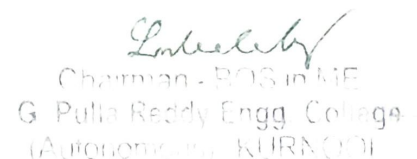 Chairman - BOS in ME
G. Pulla Reddy Engg. College
(Autonomous), KURNOOL